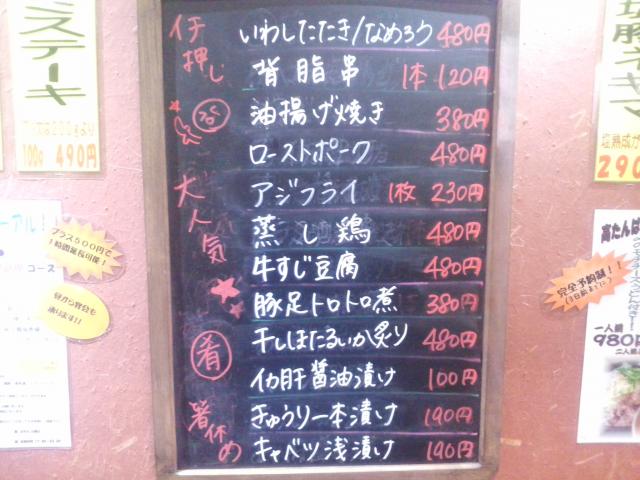 イチ押し
いわしたたき/なめろう 480円
背脂串 1本 120円
油揚げ焼き 380円
ローストポーク 480円
大人気
アジフライ 1枚 230円
蒸し鶏 480円
牛すじ豆腐 480円
豚足トロトロ煮 380円
肴
干しほたるいか炙り 480円
イカ肝醤油漬け 100円
箸休め
きゅうり一本漬け 190円
キャベツ浅漬け 190円
ステーキ
100g 490円
プラス500円で
1時間延長可能!
コース
昼から宴会も
承ります!!
290
高たんぱ
完全予約制!!
(3日前までに)
一人前
980円
二人前